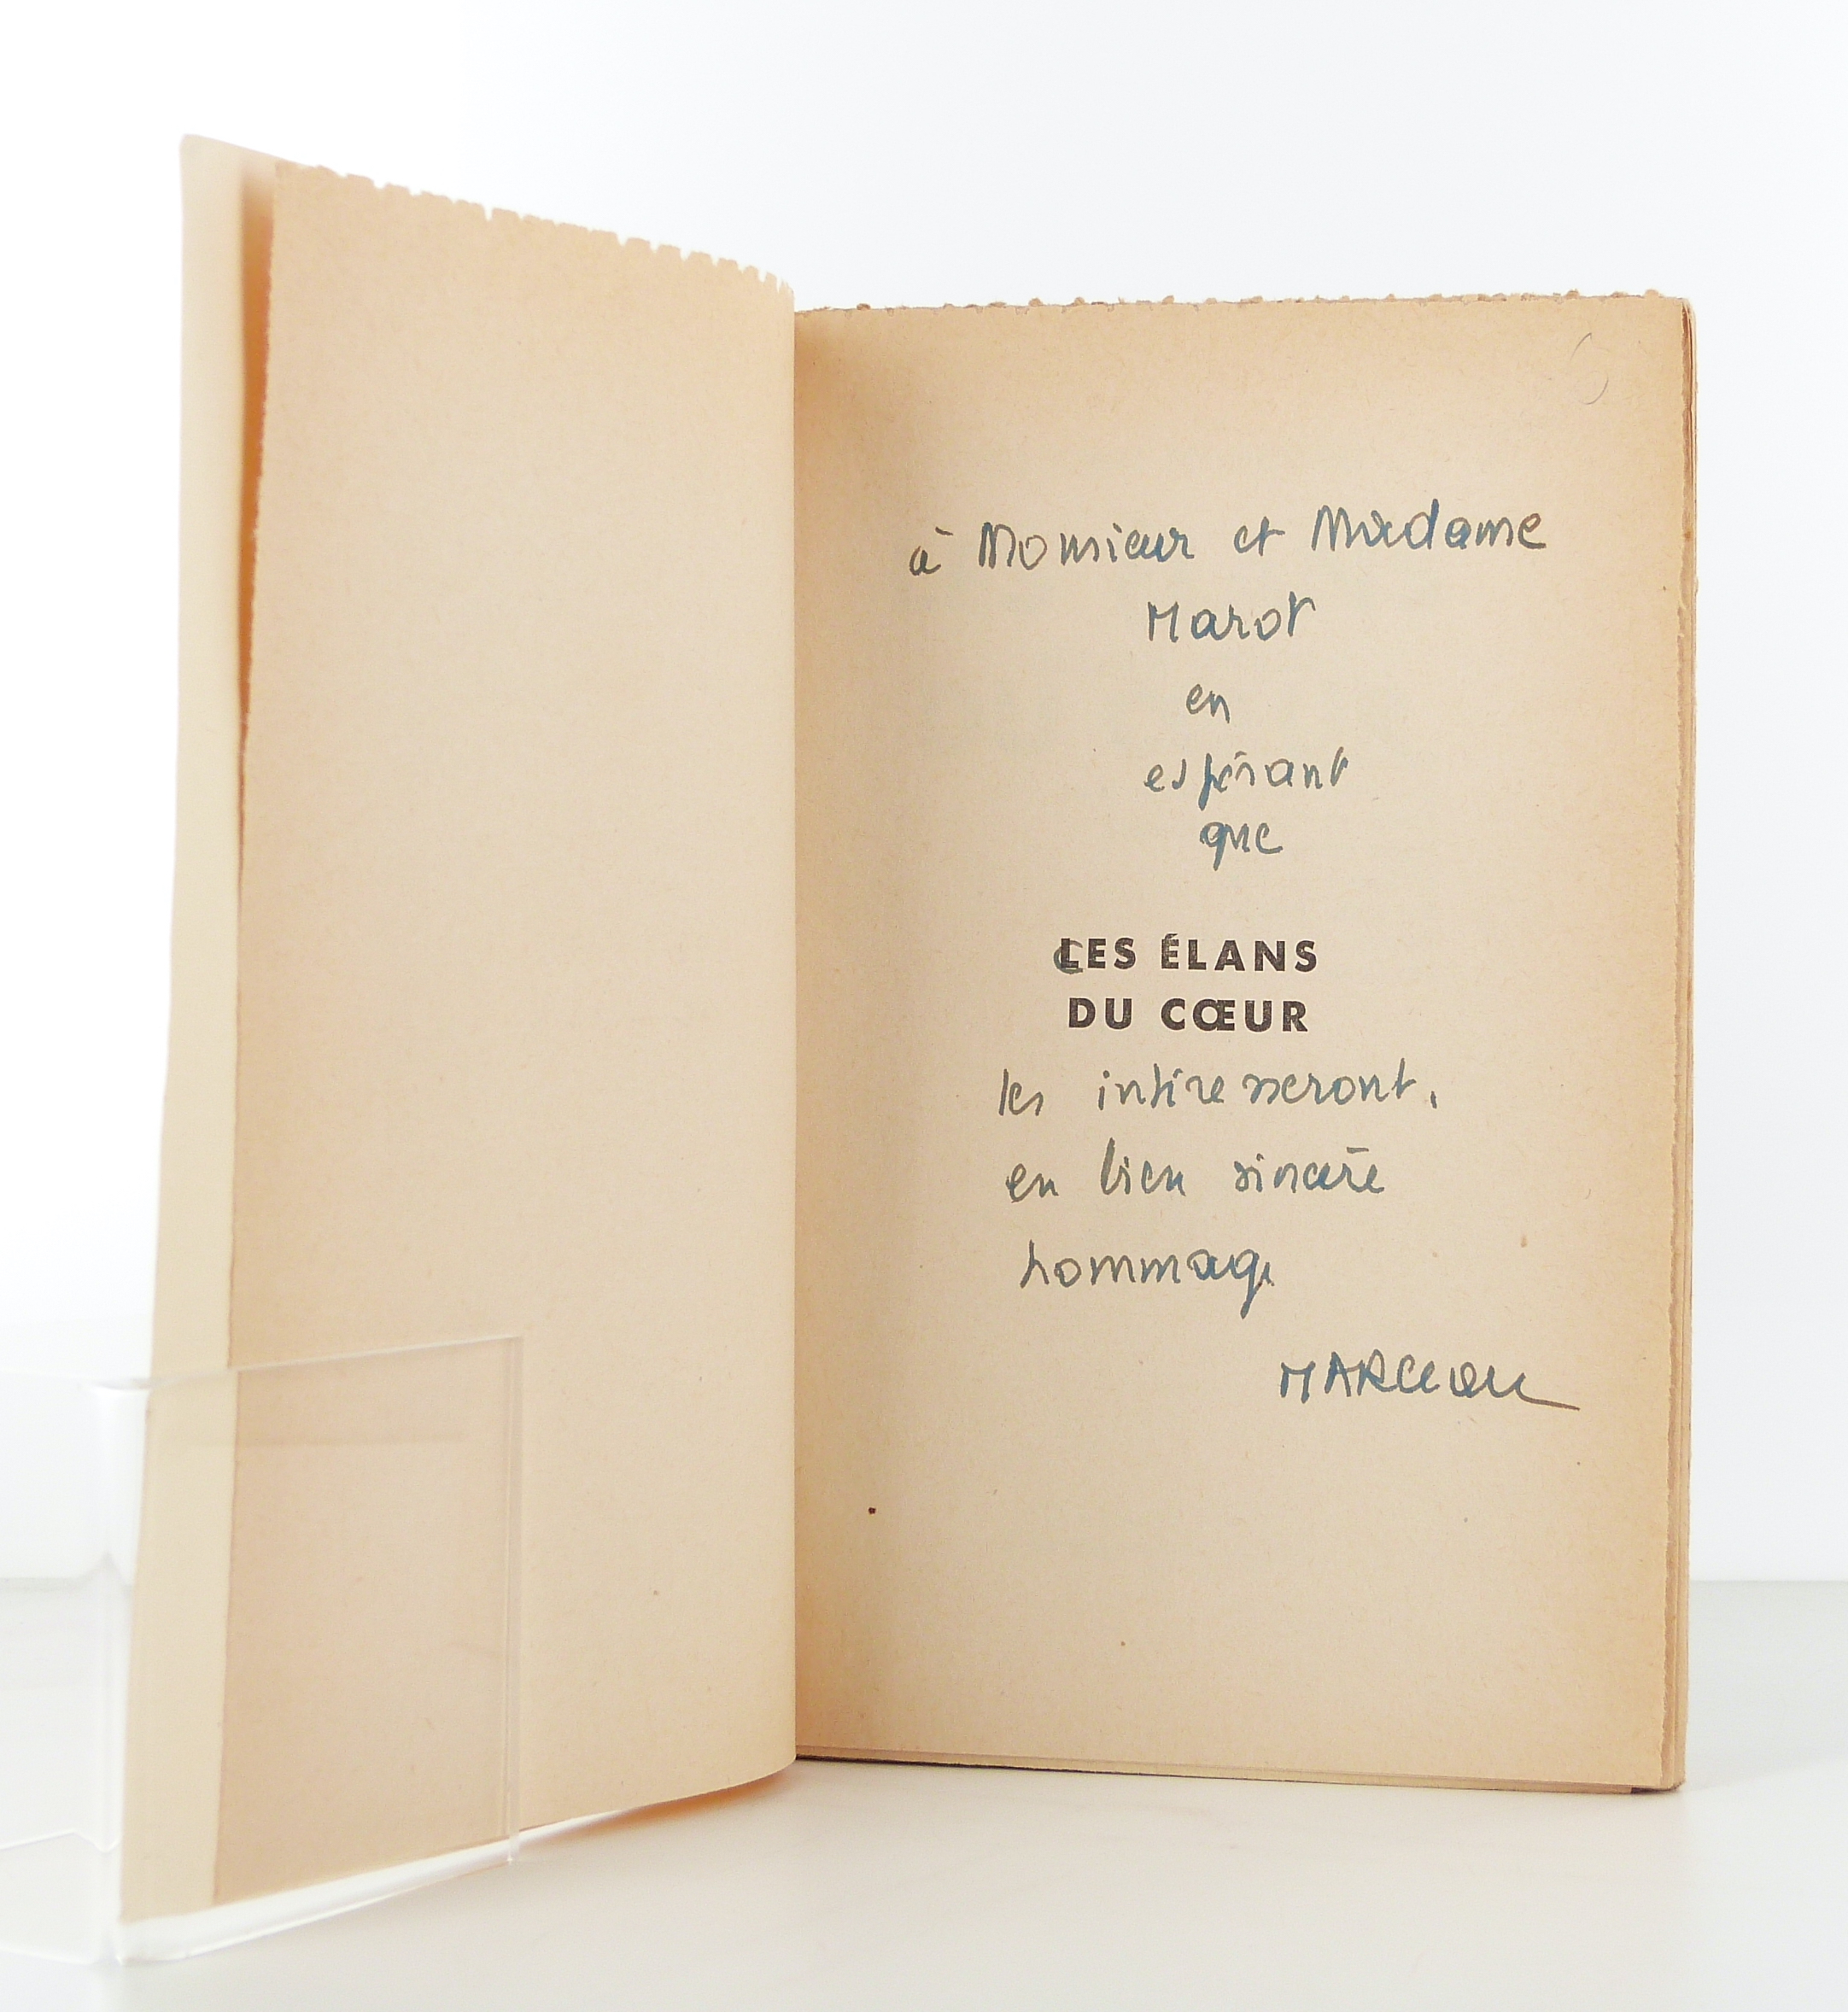 à Monsieur et Madame
Marot
en
espérant
que
LES ÉLANS
DU CŒUR
les intéresseront.
en bien sincère
hommage